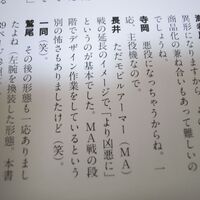 異形になりますから、よ
商品化の兼ね合いもあって難しいの
でしょうね。
寺岡　悪役になっちゃうからね。一
応、主役機なので。
長井　ただモビルアーマー（ＭＡ）
戦の延長のイメージで、「より凶悪に」
というのが基本でした。ＭＡ戦の段
階でデザイン作業をしているという
別の怖さもありましたけど（笑）。
一同　（笑）。
鷲尾　その後の形態も一応ありまし
たよね（左腕を換装した形態、本書